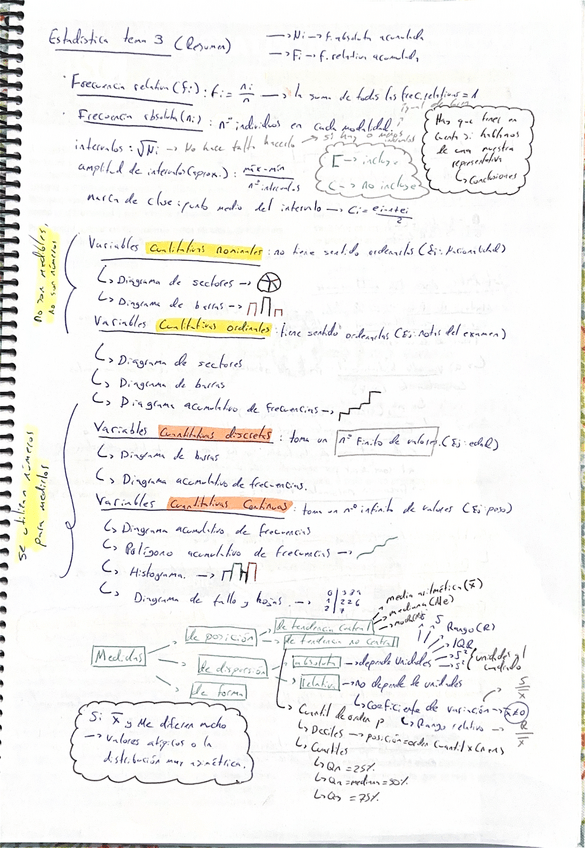 Estadística tema 3 (Resumen)
→ Ni → f. absoluta acumulada
→ Fi → f. relativa acumulada
· Frecuencia relativa (fi): fi = ni/n → la suma de todas las frec. relativas = 1
· Frecuencia absoluta (ni): nº individuos en cada modalidad.
intervalos: √Ni → No hace falta hacerlo
si hay o menos intervalos
amplitud de intervalos (aprox.): máx-mín / nº intervalos
[ → incluye
( → no incluye
Hay que tener en
cuenta si hablamos
de una muestra
representativa
↳ Conclusiones
marca de clase: punto medio del intervalo → Ci =
no son medibles,
no son números
Variables Cualitativas nominales: no tiene sentido ordenarlas (Ej: Nacionalidad)
↳ Diagrama de sectores →
↳ Diagrama de barras →
Variables Cualitativas ordinales: tiene sentido ordenarlas (Ej: notas del examen)
↳ Diagrama de sectores
↳ Diagrama de barras
↳ Diagrama acumulativo de frecuencias →
se utilizan números
para medirlos
Variables Cuantitativas discretas: toma un nº finito de valores. (Ej: edad)
↳ Diagrama de barras
↳ Diagrama acumulativo de frecuencias.
Variables Cuantitativas Continuas: toma un nº infinito de valores (Ej: peso)
↳ Diagrama acumulativo de frecuencias
↳ Polígono acumulativo de frecuencias →
↳ Histograma. →
↳ Diagrama de tallo y hojas. →
Medidas
de posición
de tendencia central
media aritmética (x̄)
mediana (Me)
moda
de tendencia no central
↳ Cuantil de orden p
↳ Deciles → posición
↳ Cuartiles
↳ Q1 = 25%
↳ Q2 = mediana = 50%
↳ Q3 = 75%
de dispersión
absoluta → depende unidades
Rango (R)
IQR
S²
unidades al
cuadrado
relativa → no depende de unidades
↳ Coeficiente de variación → x̄≠0
S/x̄
↳ Rango relativo → R/x̄
de forma
Si x̄ y Me difieren mucho
→ valores atípicos o la
distribución muy asimétrica.